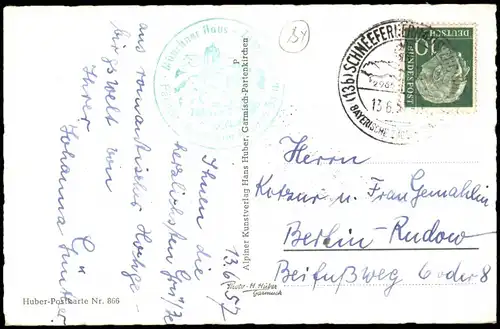 13.6.57
Ihnen die
herzlichsten Grüße
aus romantischer Hochge-
birgswelt von
Ihrer
Johanna Günther
Huber-Postkarte Nr. 866
P
Alpiner Kunstverlag Hans Huber, Garmisch-Partenkirchen
Photo-H. Huber
Garmisch
Münchner Haus
84
(13b) SCHNEEFERNER
13.6.5
BAYERISCHE
10
DEUTSCHE
BUNDESPOST
Herrn
u. Frau Gemahlin
Berlin-Rudow
Beifußweg 6 oder 8